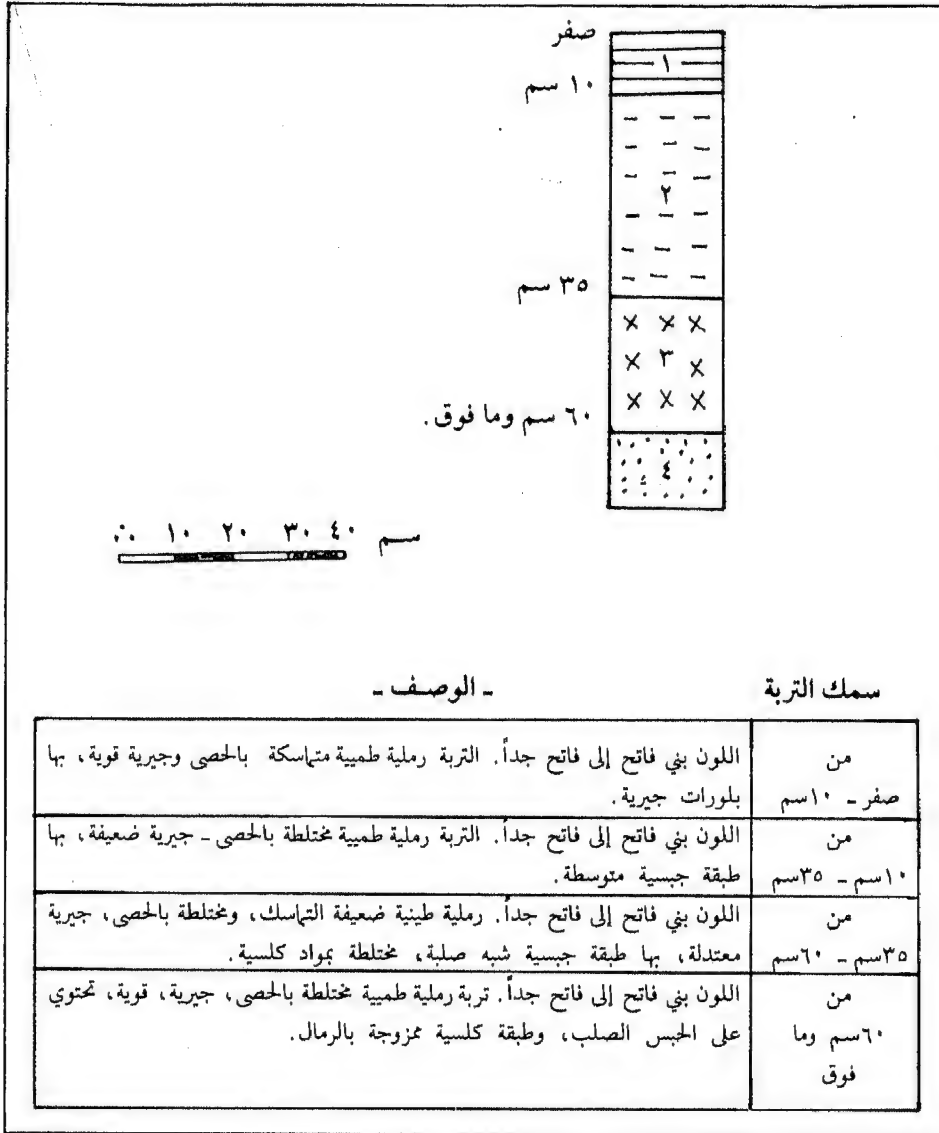 صفر
١
١٠ سم
٢
٣٥ سم
٣
٦٠ سم وما فوق.
٤
٠ ١٠ ٢٠ ٣٠ ٤٠ سم
سمك التربة
ـ الوصف ـ
من
صفر ـ ١٠سم
اللون بني فاتح إلى فاتح جداً. التربة رملية طميية متماسكة بالحصى وجيرية قوية، بها
بلورات جيرية.
من
١٠سم ـ ٣٥سم
اللون بني فاتح إلى فاتح جداً. التربة رملية طميية مختلطة بالحصى ـ جيرية ضعيفة، بها
طبقة جبسية متوسطة.
من
٣٥سم ـ ٦٠سم
اللون بني فاتح إلى فاتح جداً. رملية طينية ضعيفة التماسك، ومختلطة بالحصى، جيرية
معتدلة، بها طبقة جبسية شبه صلبة، مختلطة بمواد كلسية.
من
٦٠سم وما
فوق
اللون بني فاتح إلى فاتح جداً. تربة رملية طميية مختلطة بالحصى، جيرية، قوية، تحتوي
على الجبس الصلب، وطبقة كلسية ممزوجة بالرمال.